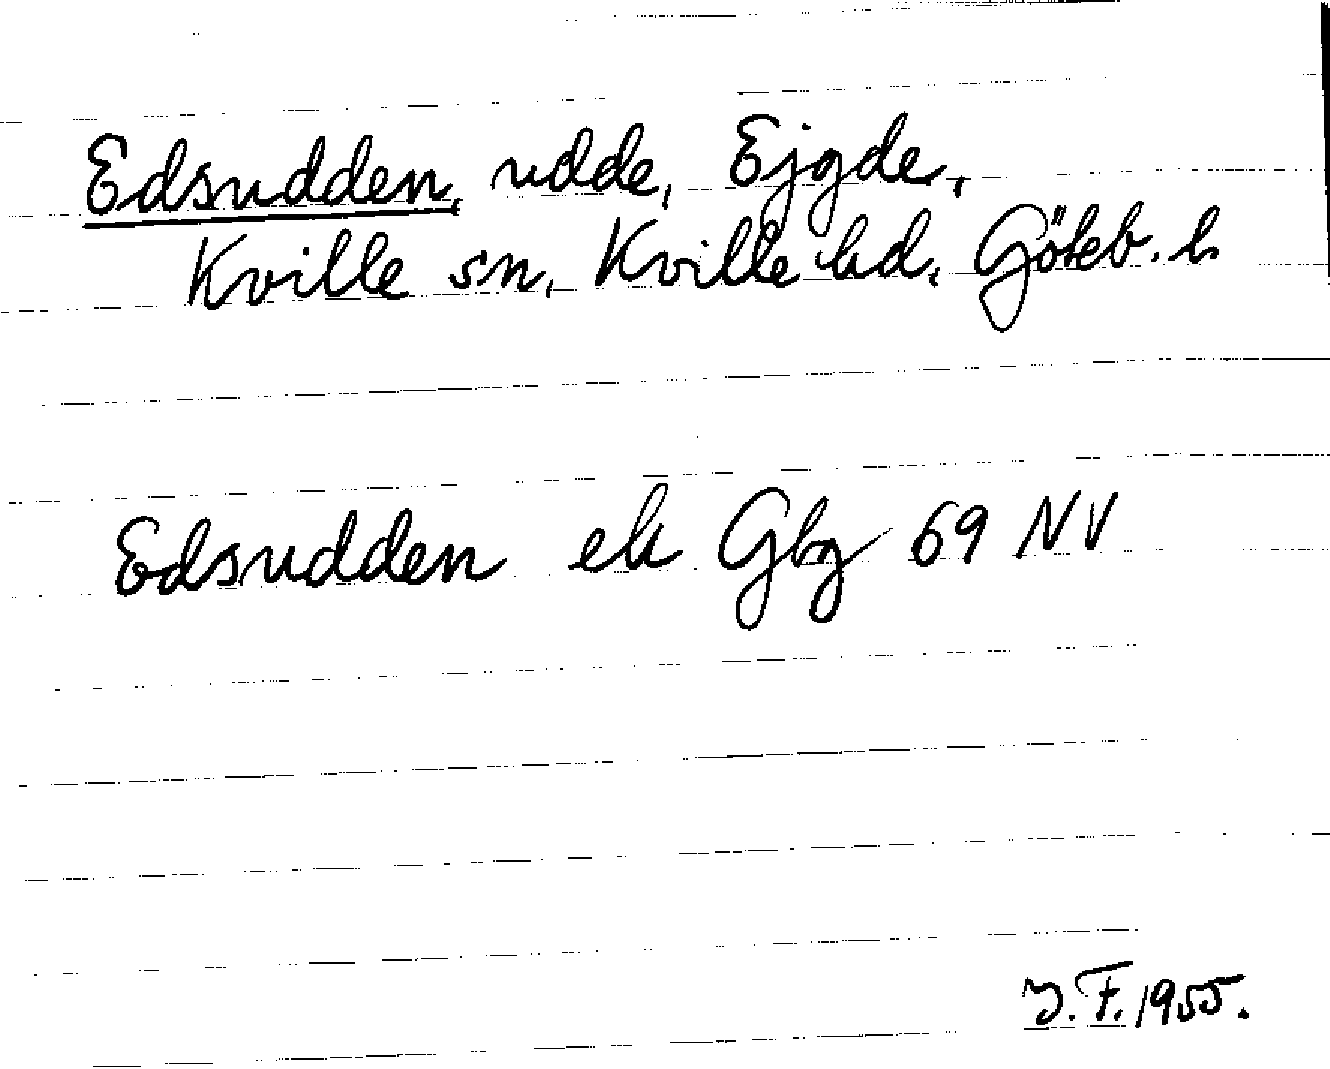 Edsudden, udde, Ejgde,
Kville sn, Kville hd, Göteb. l.
Edsudden ek Gbg 69 NV
J. F. 1955.